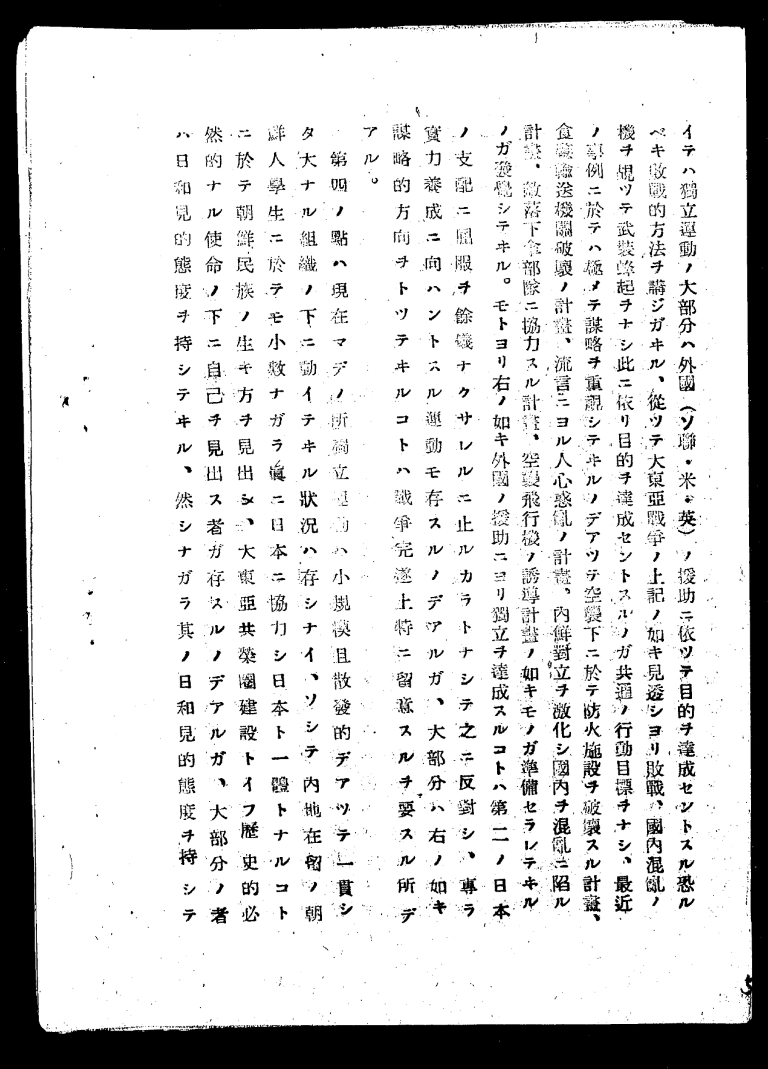 イテハ獨立運動ノ大部分ハ外國(ソ聯・米・英)ノ援助ニ依ツテ目的ヲ達成セントスル恐ル
ベキ敗戰的方法ヲ講ジガキル、從ツテ大東亞戰爭ノ上記ノ如キ見透シヨリ敗戰、國內混亂ノ
機ヲ覘ツテ武裝蜂起ヲナシ此ニ依リ目的ヲ達成セントスルノガ共通ノ行動目標ヲナシ、最近
ノ事例ニ於テハ極メテ謀略ヲ重視シテキルノデアツテ空襲下ニ於テ防火施設ヲ破壞スル計畫、
食糧輸送機關破壞ノ計畫、流言ニヨル人心惑亂ノ計畫、內鮮對立ヲ激化シ國內ヲ混亂ニ陷ル
計畫、敵落下傘部隊ニ協力スル計畫、空襲飛行機ノ誘導計畫ノ如キモノガ準備セラレテキル
ノガ發覺シテキル。モトヨリ右ノ如キ外國ノ援助ニヨリ獨立ヲ達成スルコトハ第二ノ日本
ノ支配ニ屈服ヲ餘儀ナクサレルニ止ルカラトナシテ之ニ反對シ、專ラ
實力養成ニ向ハントスル運動モ存スルノデアルガ、大部分ハ右ノ如キ
謀略的方向ヲトツテキルコトハ戰爭完遂上特ニ留意スルヲ要スル所デ
アル。
第四ノ點ハ現在マデノ所獨立運動ハ小規模且散發的デアツテ一貫シ
タ大ナル組織ノ下ニ動イテキル狀況ハ存シナイ、ソシテ內地在留ノ朝
鮮人學生ニ於テモ小數ナガラ眞ニ日本ニ協力シ日本ト一體トナルコト
ニ於テ朝鮮民族ノ生キ方ヲ見出シ、大東亞共榮圈建設トイフ歷史的必
然的ナル使命ノ下ニ自己ヲ見出ス者ガ存スルノデアルガ、大部分ノ者
ハ日和見的態度ヲ持シテキル、然シナガラ其ノ日和見的態度ヲ持シテ